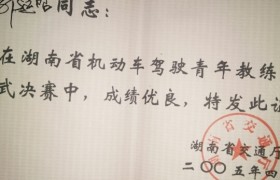 同志：
在湖南省机动车驾驶青年教练
式决赛中，成绩优良，特发此证
湖南省交通厅
二〇〇五年四